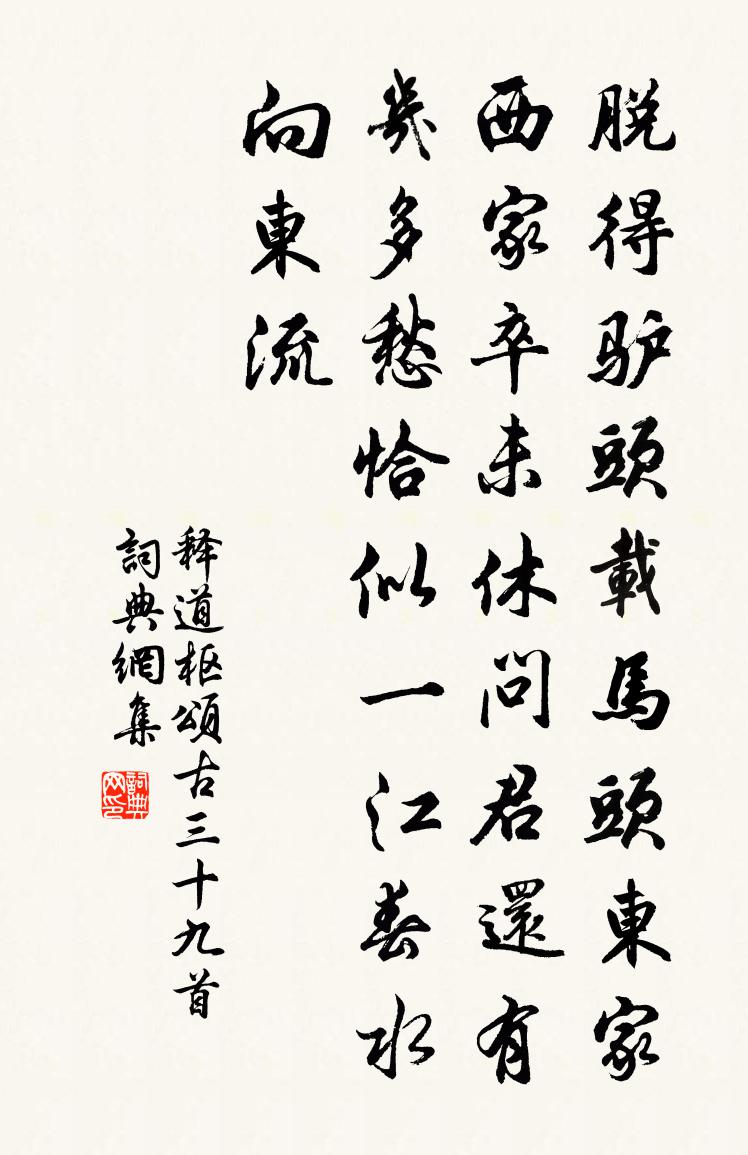 脱得驴頭載馬頭東家
西家卒未休問君還有
幾多愁恰似一江春水
向東流
释道枢頌古三十九首
詞典網集
詞典网印